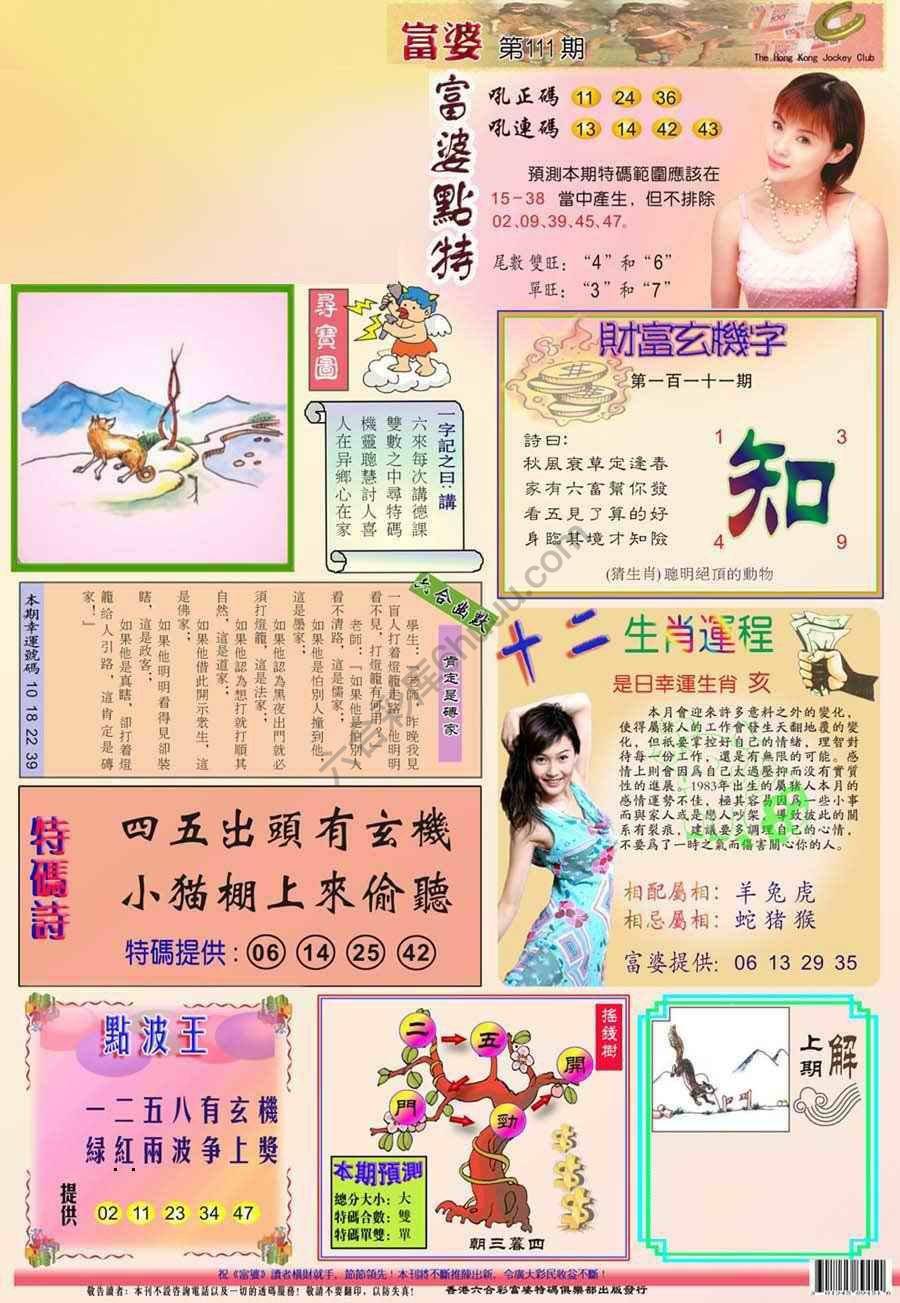 富婆 第111期
The Hong Kong Jockey Club
富婆點特
吼正碼 11 24 36
吼連碼 13 14 42 43
預測本期特碼範圍應該在
15-38 當中產生，但不排除
02,09,39,45,47。
尾數 雙旺：“4”和“6”
單旺：“3”和“7”
尋寶圖
一字記之曰：講
六來每次講德課
雙數之中尋特碼
機靈聰慧討人喜
人在异鄉心在家
財富玄機字
第一百一十一期
詩曰：
秋風衰草定逢春
家有六富幫你發
看五見了算的好
身臨其境才知險
1 3
知
4 9
(猜生肖)聰明絕頂的動物
六合幽默
肯定是磚家
學生：“老師，昨晚我見
一盲人打着燈籠走路，他明明
看不見，打燈籠有何用？”
老師：“如果他是怕別人
看不清路，這是儒家；
如果他是怕別人撞到他，
這是墨家；
如果他認為黑夜出門就必
須打燈籠，這是法家；
如果他認為想打就打順其
自然，這是道家；
如果他借此開示衆生，這
是佛家；
如果他明明看得見卻裝
瞎，這是政客；
如果他是真瞎，卻打着燈
籠給人引路，這肯定是磚
家！”
本期幸運號碼 10 18 22 39
十二生肖運程
是日幸運生肖 亥
本月會迎來許多意料之外的變化，
使得屬豬人的工作會發生天翻地覆的變
化，但祇要掌控好自己的情緒，理智對
待每一份工作，還是有無限的可能。感
情上則會因爲自己太過壓抑而没有實質
性的進展。1983年出生的屬豬人本月的
感情運勢不佳，極其容易因爲一些小事
而與家人或是戀人吵架，導致彼此的關
系有裂痕，建議要多調理自己的心情，
不要爲了一時之氣而傷害關心你的人。
相配屬相：羊兔虎
相忌屬相：蛇猪猴
富婆提供：06 13 29 35
特碼詩
四五出頭有玄機
小猫棚上來偷聽
特碼提供：06 14 25 42
點波王
一二五八有玄機
綠紅兩波争上獎
提供 02 11 23 34 47
搖錢樹
二 五 開
門 勁
本期預測
總分大小：大
特碼合數：雙
特碼單雙：單
朝三暮四
上期解
祝《富婆》讀者横財就手，節節領先！本刊將不斷推陳出新，令廣大彩民收益不斷！
敬告讀者：本刊不設咨詢電話以及一切的透碼服務！敬請不要翻印，以防失真！ 香港六合彩富婆特碼俱樂部出版發行